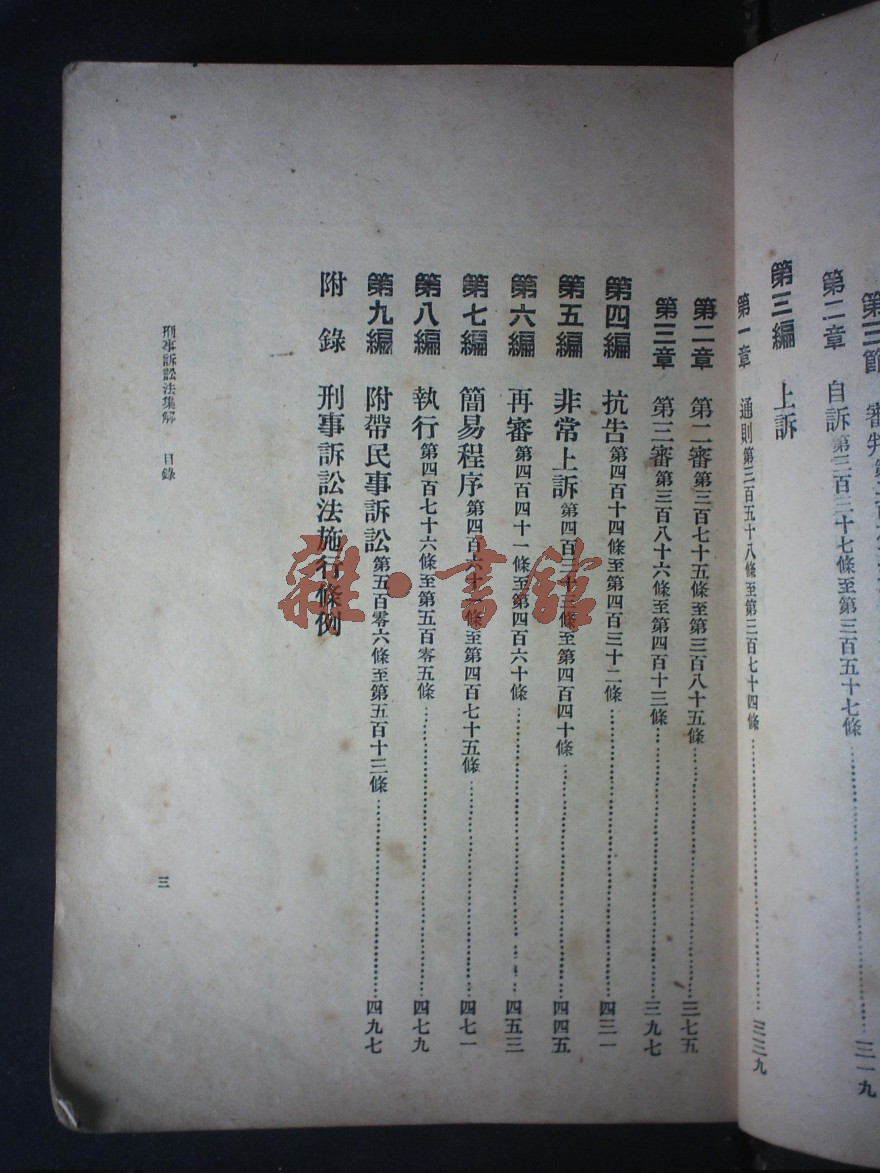 第三節 審判
第二章 自訴第三百三十七條至第三百五十七條 三一九
第三編 上訴
第一章 通則第三百五十八條至第三百七十四條 三三九
第二章 第二審第三百七十五條至第三百八十五條 三七五
第三章 第三審第三百八十六條至第四百十三條 三九七
第四編 抗告第四百十四條至第四百三十二條 四三一
第五編 非常上訴第四百三十三條至第四百四十條 四四五
第六編 再審第四百四十一條至第四百六十條 四五三
第七編 簡易程序第四百六十一條至第四百七十五條 四七一
第八編 執行第四百七十六條至第五百零五條 四七九
第九編 附帶民事訴訟第五百零六條至第五百十三條 四九七
附錄 刑事訴訟法施行條例
刑事訴訟法集解 目錄 三
雜·書館